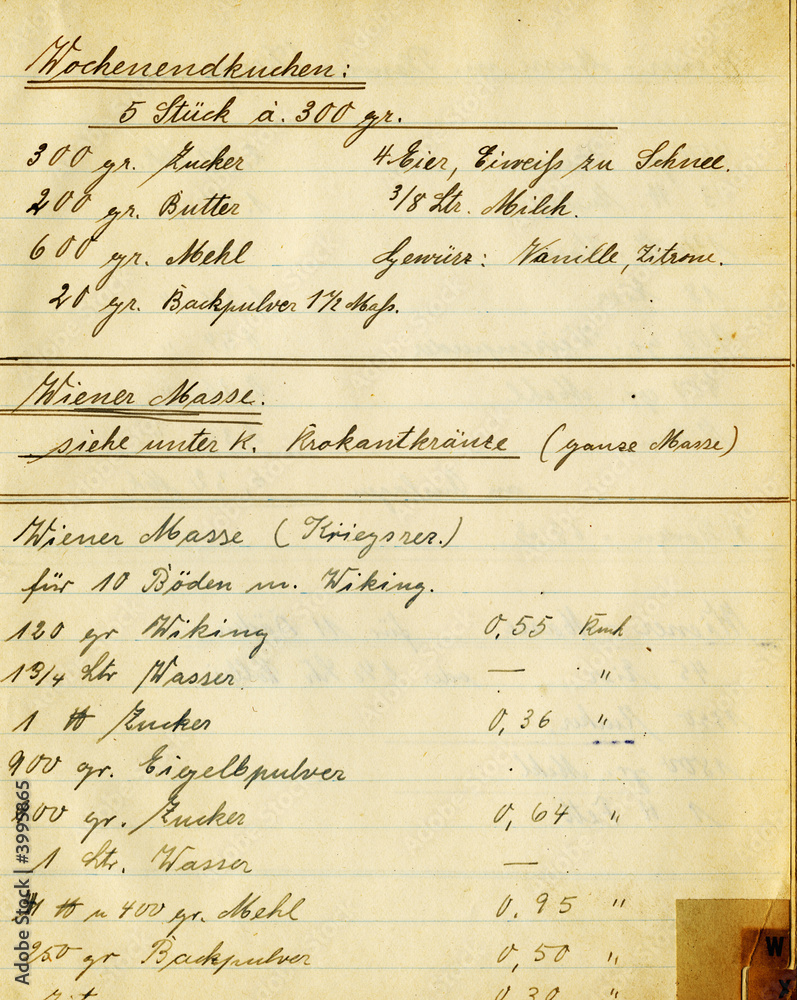 Wochenendkuchen:
5 Stück à. 300 gr.
300 gr. Zucker 4 Eier, Eiweiß zu Schnee.
200 gr. Butter 3/8 Ltr. Milch.
600 gr. Mehl Gewürz: Vanille, Zitrone.
20 gr. Backpulver 1 1/2 Maß.
Wiener Masse.
siehe unter K. Krokantkränze (ganze Masse)
Wiener Masse (Kriegsrez.)
für 10 Böden m. Wiking.
120 gr Wiking 0,55
1 3/4 Ltr Wasser — "
1 ℔ Zucker 0,36 "
gr. Eigelbpulver
gr. Zucker 0,64 "
1 Ltr. Wasser —
℔ u 400 gr. Mehl 0.95 "
250 gr Backpulver 0,50 "
0,30 "
W
Adobe Stock | #3995865